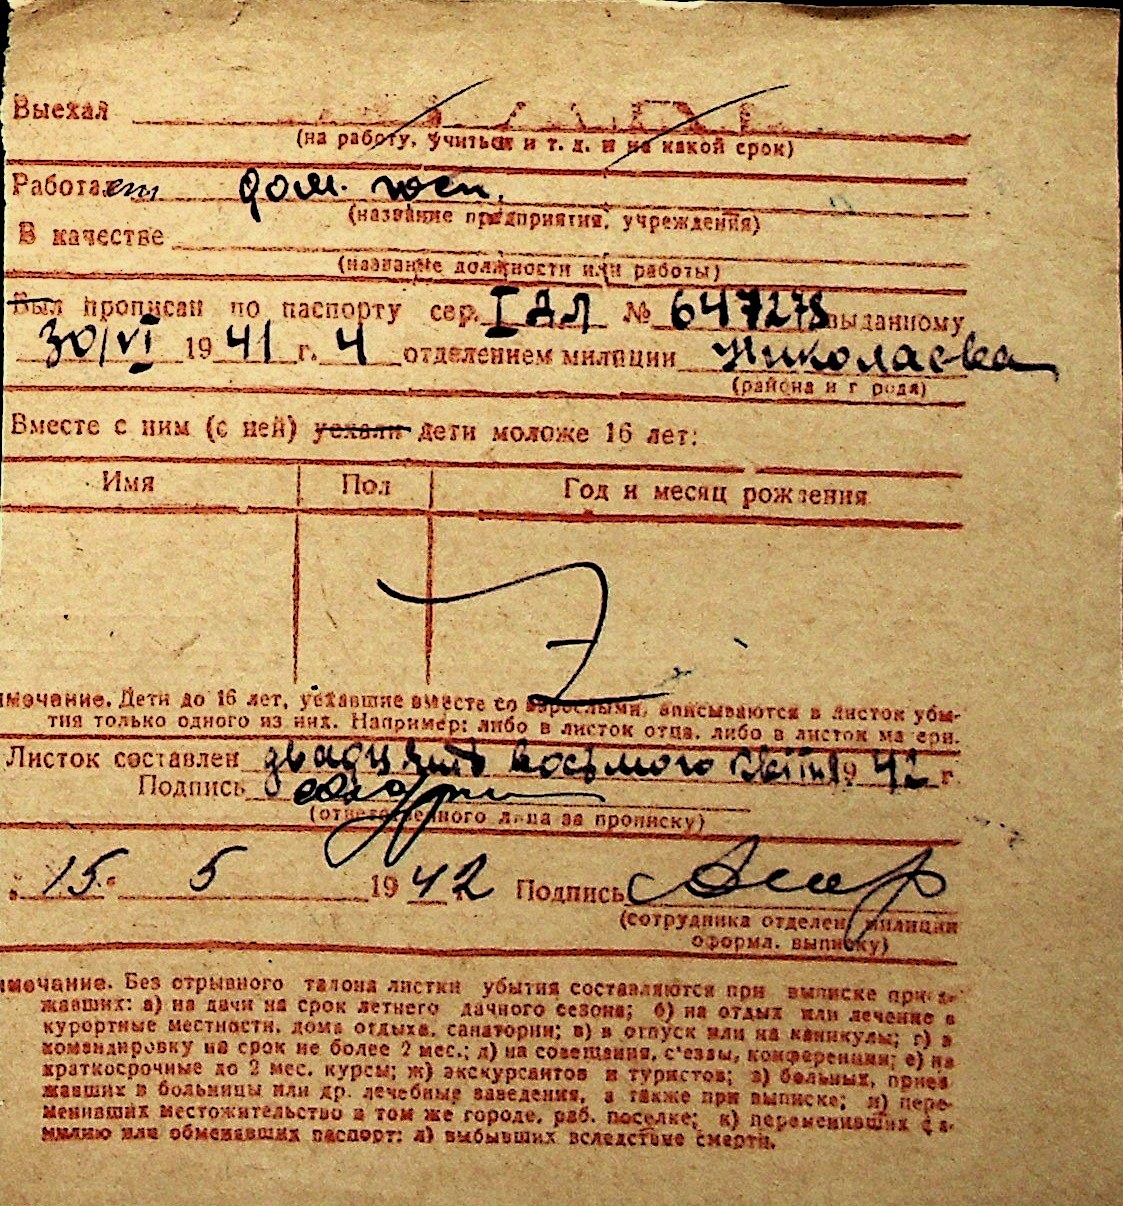 Выехал
(на работу, учиться и т. д. и на какой срок)
Работает дом. хоз.
(название предприятия, учреждения)
В качестве
(название должности или работы)
Был прописан по паспорту сер. I ДЛ № 647278 выданному
30/VI 1941 г. 4 отделением милиции Николаева
(района и г рода)
Вместе с ним (с ней) уехали дети моложе 16 лет:
Имя Пол Год и месяц рождения
имечание. Дети до 16 лет, уехавшие вместе со взрослыми, вписываются в листок убы-
тия только одного из них. Например: либо в листок отца, либо в листок ма ери.
Листок составлен двадцать восьмого 1942 г.
Подпись
(ответственного лица за прописку)
„15“ 5 1942 Подпись
(сотрудника отделен. милиции
оформл. выписку)
имечание. Без отрывного талона листки убытия составляются при выписке приез-
жавших: а) на дачи на срок летнего дачного сезона; б) на отдых или лечение в
курортные местности, дома отдыха, санатории; в) в отпуск или на каникулы; г) в
командировку на срок не более 2 мес.; д) на совещания, с'езды, конференции; е) на
краткосрочные до 2 мес. курсы; ж) экскурсантов и туристов; з) больных, приез-
жавших в больницы или др. лечебные заведения, а также при выписке; и) пере-
менивших местожительство в том же городе, раб. поселке; к) переменивших фа-
милию или обменявших паспорт; л) выбывших вследствие смерти.